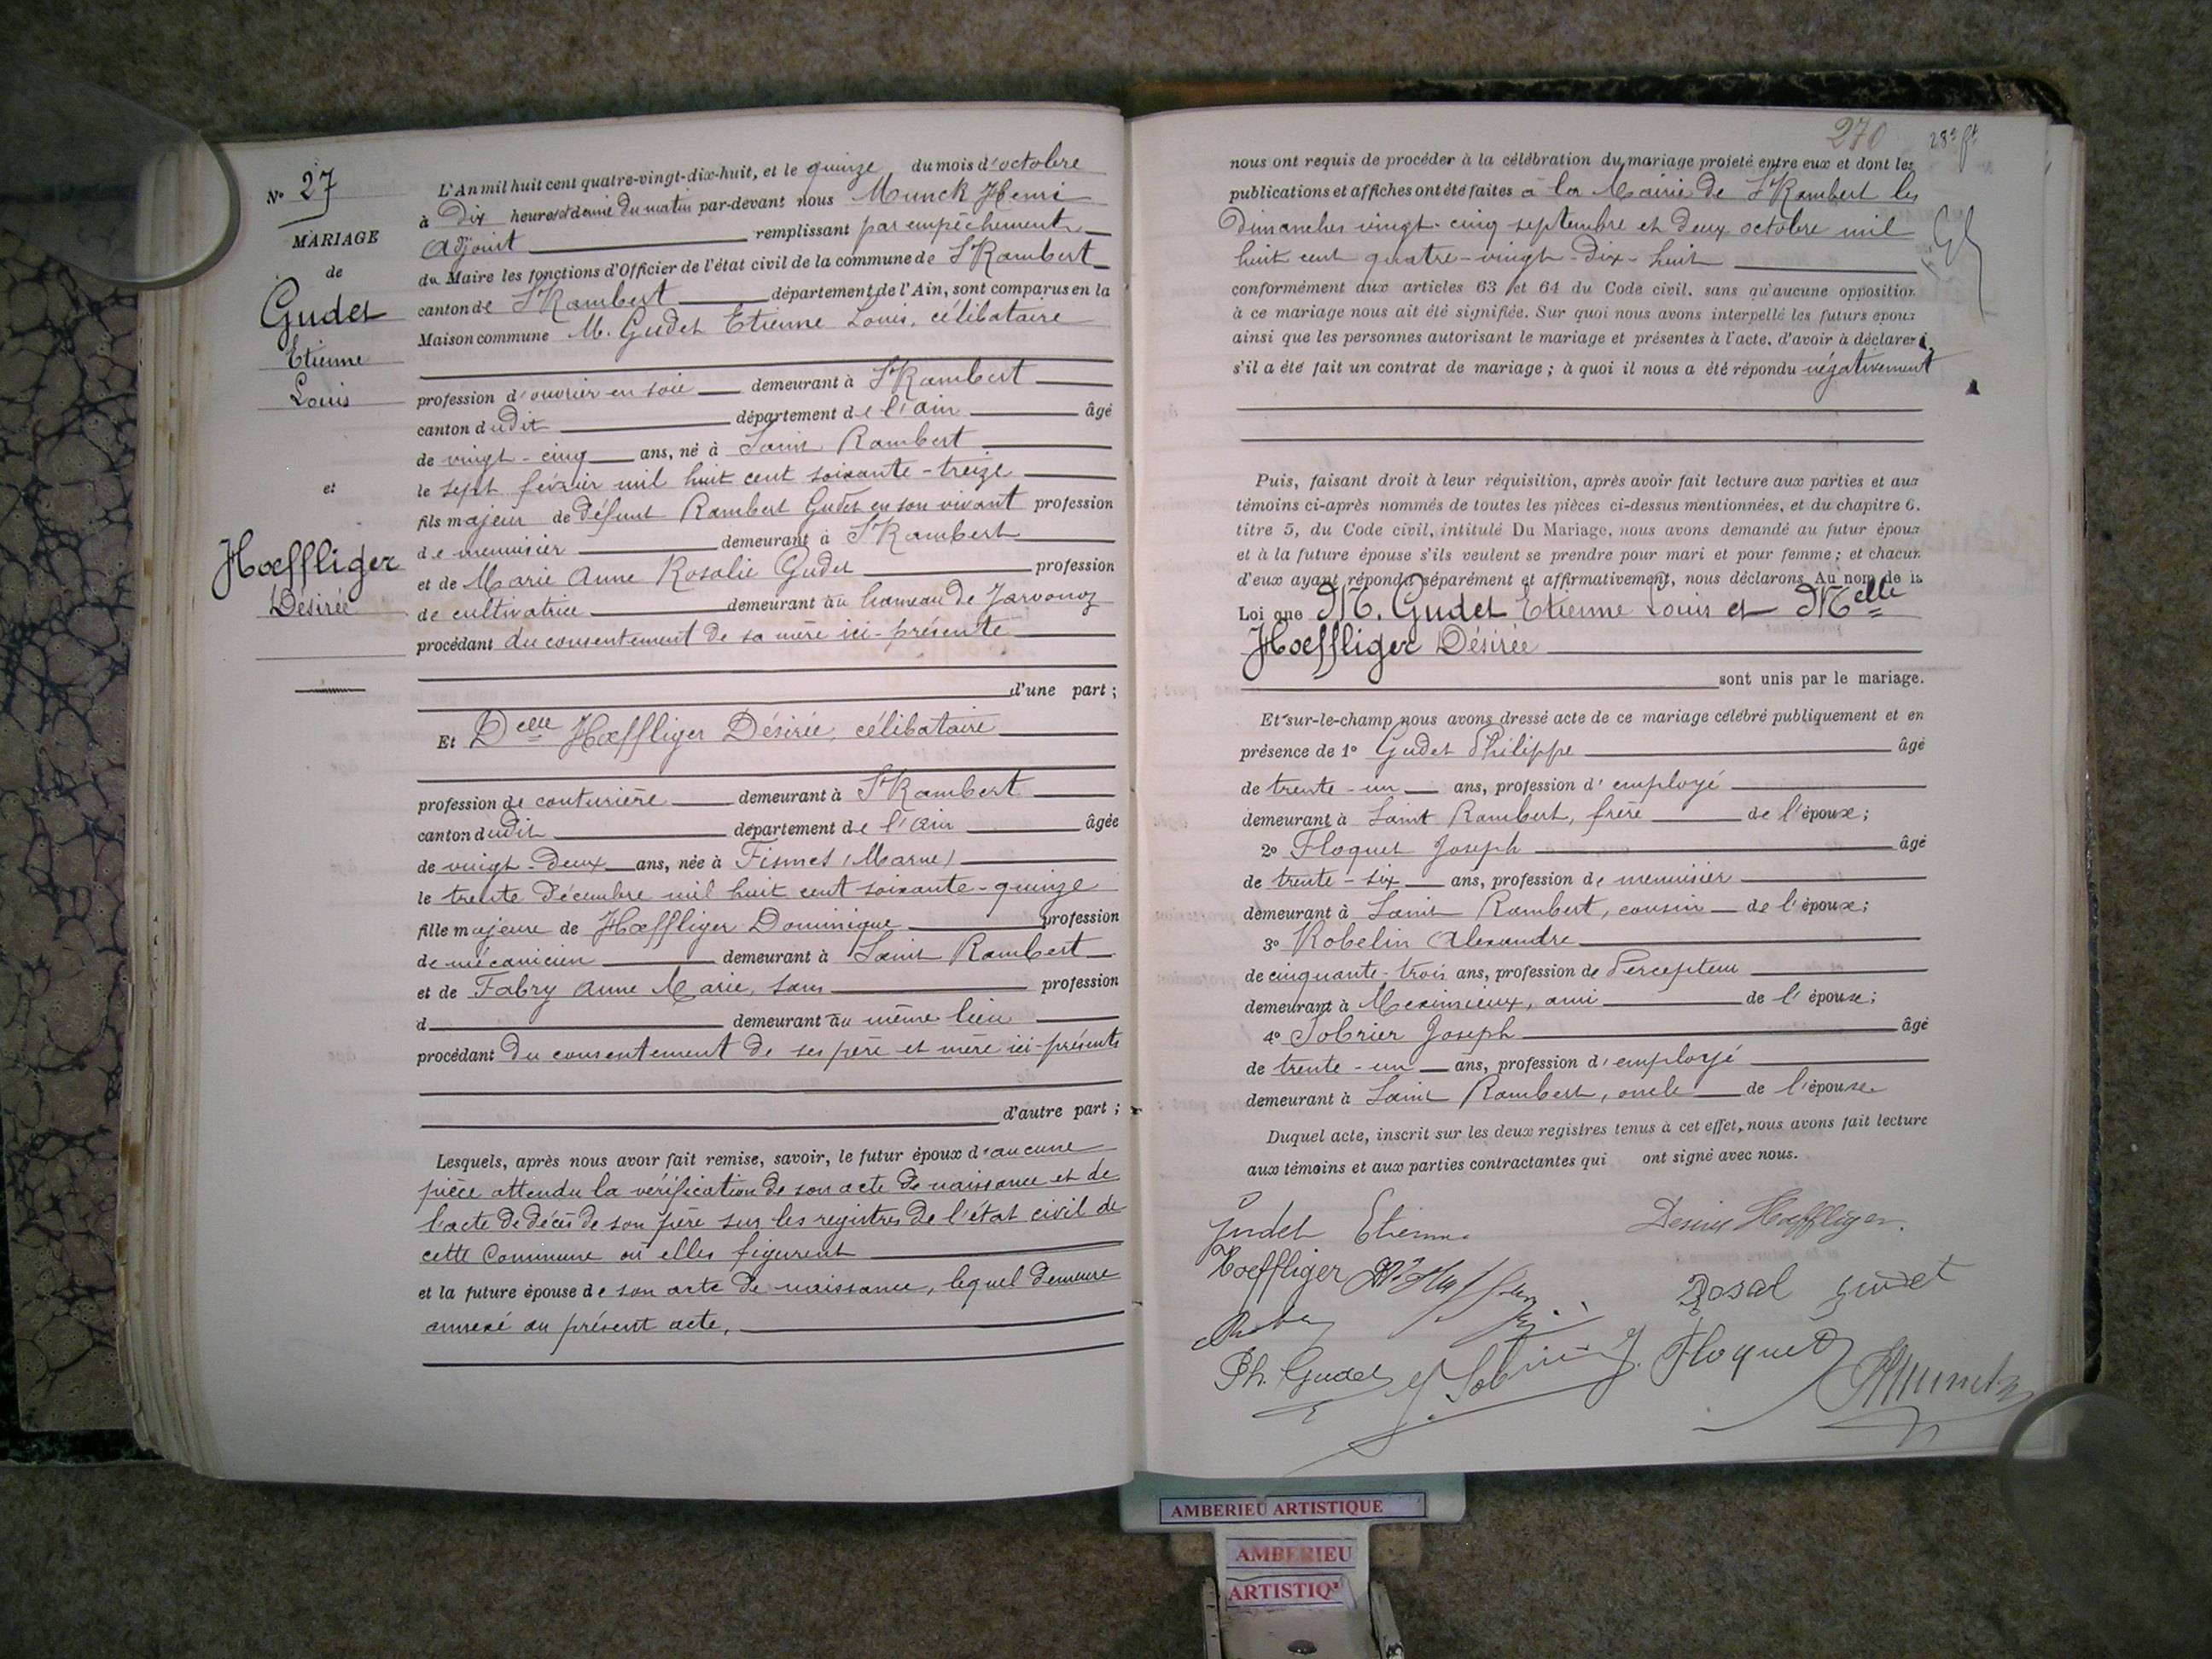 N° 27
MARIAGE
de
Gudet
Etienne
Louis
et
Hoeffliger
Désirée
L'An mil huit cent quatre-vingt-dix-huit, et le quinze du mois d'octobre
à dix heures et demie du matin par-devant nous Munck Henri
adjoint remplissant par empêchement
du Maire les fonctions d'Officier de l'état civil de la commune de St Rambert
canton de St Rambert département de l'Ain, sont comparus en la
Maison commune M. Gudet Etienne Louis, célibataire
profession d'ouvrier en soie demeurant à St Rambert
canton dudit département de l'ain âgé
de vingt-cinq ans, né à Saint Rambert
le sept février mil huit cent soixante-treize
fils majeur de défunt Rambert Gudet en son vivant profession
de menuisier demeurant à St Rambert
et de Marie Anne Rosalie Gudet profession
de cultivatrice demeurant au hameau de Javornoz
procédant du consentement de sa mère ici-présente
d'une part ;
Et Delle Hoeffliger Désirée, célibataire
profession de couturière demeurant à St Rambert
canton dudit département de l'Ain âgée
de vingt-deux ans, née à Fismes (Marne)
le trente décembre mil huit cent soixante-quinze
fille majeure de Hoeffliger Dominique profession
de mécanicien demeurant à Saint Rambert
et de Fabry Anne Marie, sans profession
d demeurant au même lieu
procédant du consentement de ses père et mère ici-présents
d'autre part ;
Lesquels, après nous avoir fait remise, savoir, le futur époux d'aucune
pièce attendu la vérification de son acte de naissance et de
l'acte de décès de son père sur les registres de l'état civil de
cette Commune où elles figurent
et la future épouse de son acte de naissance, lequel demeure
annexé au présent acte,
270 28e ft
nous ont requis de procéder à la célébration du mariage projeté entre eux et dont les
publications et affiches ont été faites à la Mairie de St Rambert les
Dimanches vingt-cinq septembre et deux octobre mil
huit cent quatre-vingt-dix-huit
conformément aux articles 63 et 64 du Code civil. sans qu'aucune opposition
à ce mariage nous ait été signifiée. Sur quoi nous avons interpellé les futurs époux
ainsi que les personnes autorisant le mariage et présentes à l'acte, d'avoir à déclarer
s'il a été fait un contrat de mariage ; à quoi il nous a été répondu négativement
Puis, faisant droit à leur réquisition, après avoir fait lecture aux parties et aux
témoins ci-après nommés de toutes les pièces ci-dessus mentionnées, et du chapitre 6.
titre 5, du Code civil, intitulé Du Mariage, nous avons demandé au futur époux
et à la future épouse s'ils veulent se prendre pour mari et pour femme ; et chacun
d'eux ayant répondu séparément et affirmativement, nous déclarons Au nom de la
Loi que M. Gudet Etienne Louis et Melle
Hoeffliger Désirée
sont unis par le mariage.
Et sur-le-champ nous avons dressé acte de ce mariage célébré publiquement et en
présence de 1° Gudet Philippe âgé
de trente-un ans, profession d'employé
demeurant à Saint Rambert, frère de l'époux ;
2° Floquet Joseph âgé
de trente-six ans, profession de menuisier
demeurant à Saint Rambert, cousin de l'époux ;
3° Robelin Alexandre
de cinquante-trois ans, profession de Percepteur
demeurant à Meximieux, ami de l'épouse ;
4° Sobrier Joseph âgé
de trente-un ans, profession d'employé
demeurant à Saint Rambert, oncle de l'épouse
Duquel acte, inscrit sur les deux registres tenus à cet effet, nous avons fait lecture
aux témoins et aux parties contractantes qui ont signé avec nous.
Gudet Etienne Desirée Hoeffliger
Hoeffliger Rosal Gudet
Ph. Gudet J. Sobrier J. Floquet HMunck
AMBERIEU ARTISTIQUE
AMBERIEU
ARTISTIQ